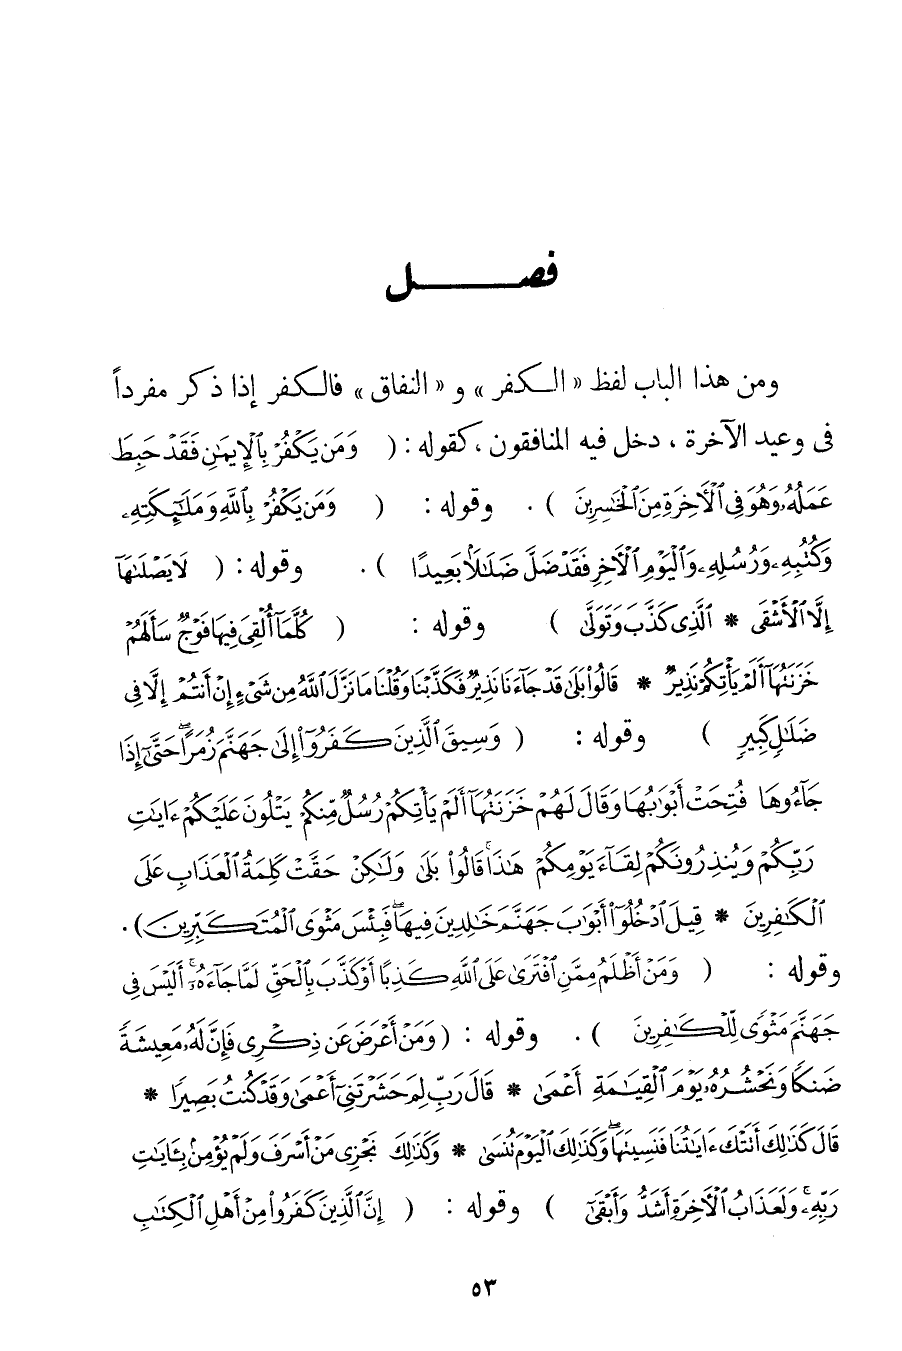 فصــــــــل
ومن هذا الباب لفظ « الـكفر » و « النفاق » فالـكفر إذا ذكر مفرداً
فى وعيد الآخرة ، دخل فيه المنافقون ، كقوله : ( وَمَن يَكْفُرْ بِٱلْإِيمَٰنِ فَقَدْ حَبِطَ
عَمَلُهُۥ وَهُوَ فِى ٱلْأَخِرَةِ مِنَ ٱلْخَٰسِرِينَ ) . وقوله : ( وَمَن يَكْفُرْ بِٱللَّهِ وَمَلَٰٓئِكَتِهِۦ
وَكُتُبِهِۦ وَرُسُلِهِۦ وَٱلْيَوْمِ ٱلْأَخِرِ فَقَدْ ضَلَّ ضَلَٰلًۢا بَعِيدًا ) . وقوله : ( لَا يَصْلَىٰهَآ
إِلَّا ٱلْأَشْقَى * ٱلَّذِى كَذَّبَ وَتَوَلَّىٰ ) وقوله : ( كُلَّمَآ أُلْقِىَ فِيهَا فَوْجٌ سَأَلَهُمْ
خَزَنَتُهَآ أَلَمْ يَأْتِكُمْ نَذِيرٌ * قَالُوا۟ بَلَىٰ قَدْ جَآءَنَا نَذِيرٌ فَكَذَّبْنَا وَقُلْنَا مَا نَزَّلَ ٱللَّهُ مِن شَىْءٍ إِنْ أَنتُمْ إِلَّا فِى
ضَلَٰلٍ كَبِيرٍ ) وقوله : ( وَسِيقَ ٱلَّذِينَ كَفَرُوٓا۟ إِلَىٰ جَهَنَّمَ زُمَرًا ۖ حَتَّىٰٓ إِذَا
جَآءُوهَا فُتِحَتْ أَبْوَٰبُهَا وَقَالَ لَهُمْ خَزَنَتُهَآ أَلَمْ يَأْتِكُمْ رُسُلٌ مِّنكُمْ يَتْلُونَ عَلَيْكُمْ ءَايَٰتِ
رَبِّكُمْ وَيُنذِرُونَكُمْ لِقَآءَ يَوْمِكُمْ هَٰذَا ۚ قَالُوا۟ بَلَىٰ وَلَٰكِنْ حَقَّتْ كَلِمَةُ ٱلْعَذَابِ عَلَى
ٱلْكَٰفِرِينَ * قِيلَ ٱدْخُلُوٓا۟ أَبْوَٰبَ جَهَنَّمَ خَٰلِدِينَ فِيهَا ۖ فَبِئْسَ مَثْوَى ٱلْمُتَكَبِّرِينَ ) .
وقوله : ( وَمَنْ أَظْلَمُ مِمَّنِ ٱفْتَرَىٰ عَلَى ٱللَّهِ كَذِبًا أَوْ كَذَّبَ بِٱلْحَقِّ لَمَّا جَآءَهُۥٓ ۚ أَلَيْسَ فِى
جَهَنَّمَ مَثْوًى لِّلْكَٰفِرِينَ ) . وقوله : ( وَمَنْ أَعْرَضَ عَن ذِكْرِى فَإِنَّ لَهُۥ مَعِيشَةً
ضَنكًا وَنَحْشُرُهُۥ يَوْمَ ٱلْقِيَٰمَةِ أَعْمَىٰ * قَالَ رَبِّ لِمَ حَشَرْتَنِىٓ أَعْمَىٰ وَقَدْ كُنتُ بَصِيرًا *
قَالَ كَذَٰلِكَ أَتَتْكَ ءَايَٰتُنَا فَنَسِيتَهَا ۖ وَكَذَٰلِكَ ٱلْيَوْمَ تُنسَىٰ * وَكَذَٰلِكَ نَجْزِى مَنْ أَسْرَفَ وَلَمْ يُؤْمِنۢ بِـَٔايَٰتِ
رَبِّهِۦ ۚ وَلَعَذَابُ ٱلْأَخِرَةِ أَشَدُّ وَأَبْقَىٰٓ ) وقوله : ( إِنَّ ٱلَّذِينَ كَفَرُوا۟ مِنْ أَهْلِ ٱلْكِتَٰبِ
٥٣